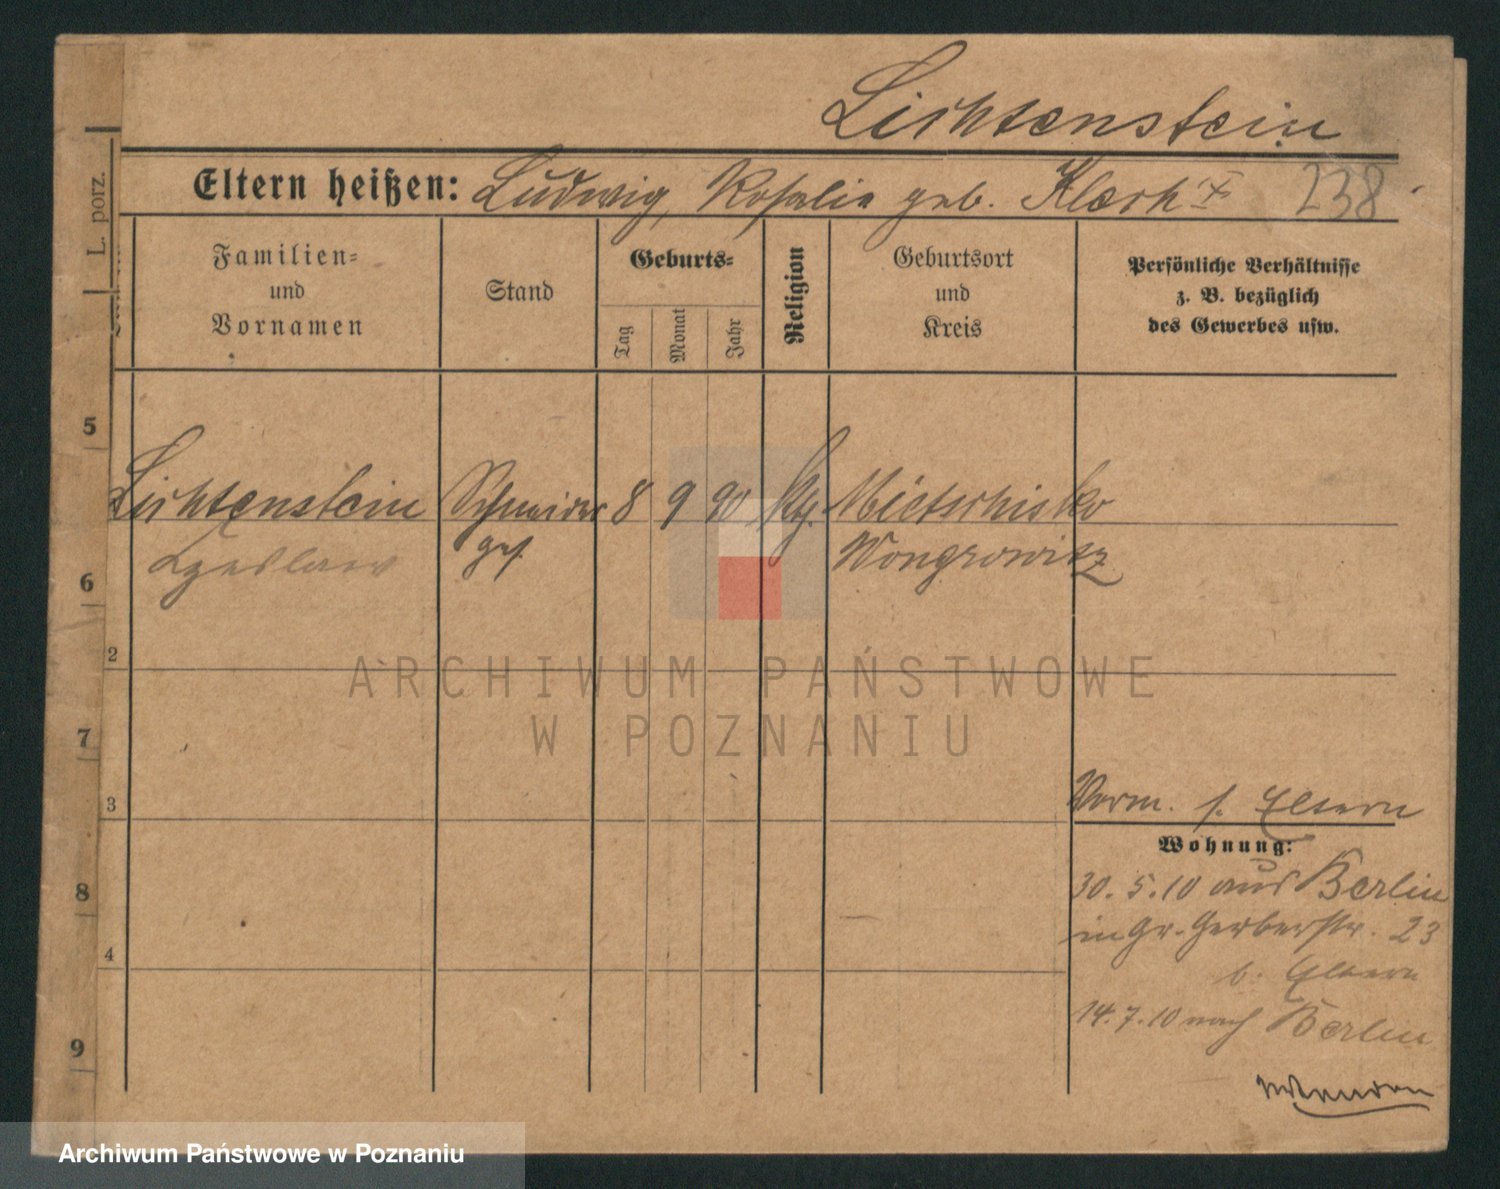 Lichtenstein
Eltern heißen: Ludwig, Rosalie geb. 238
L. porz.
Familien-
und
Vornamen
Stand
Geburts-
Tag
Monat
Jahr
Religion
Geburtsort
und
Kreis
Persönliche Verhältnisse
z. B. bezüglich
des Gewerbes usw.
5
Lichtenstein Schneider 8 9 90 Mietschisko
Czeslaw ges. Wongrowitz
6
2
7
ARCHIWUM PAŃSTWOWE
W POZNANIU
3
Vorm. s. Eltern
Wohnung:
8
30. 5. 10 aus Berlin
in Gr. Gerberstr. 23
b. Eltern
4
14. 7. 10 nach Berlin
9
Archiwum Państwowe w Poznaniu